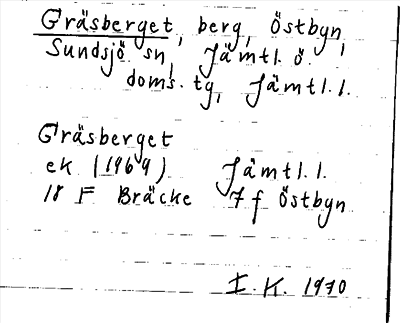 Gräsberget, berg, Östbyn,
Sundsjö sn, Jämtl. ö.
doms. tg, Jämtl. l.
Gräsberget
ek (1969) Jämtl. l.
18 F Bräcke 7 f Östbyn
I. K. 1970